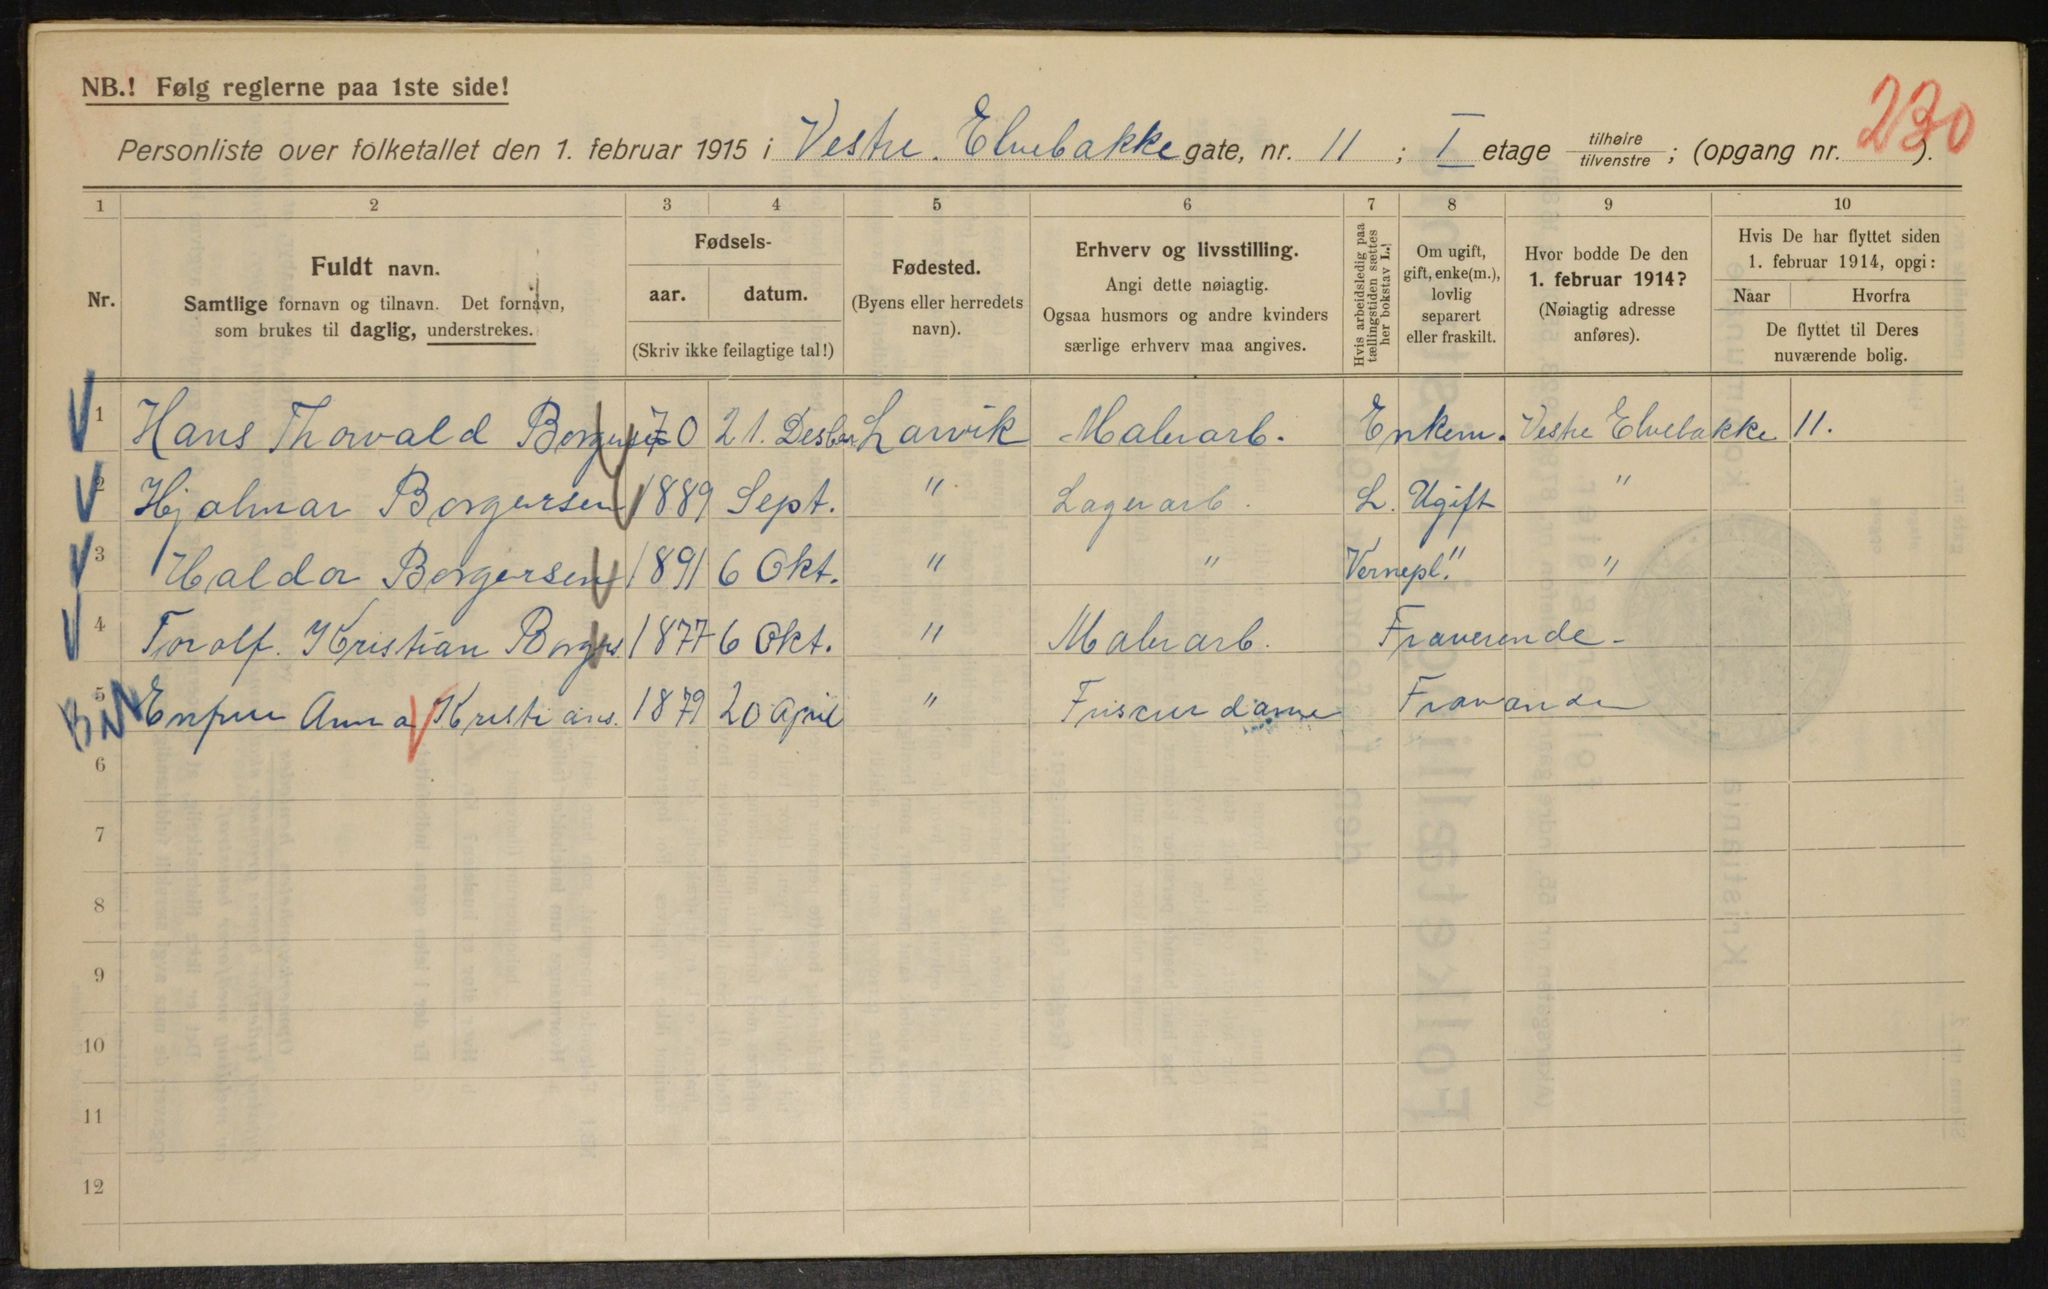 NB.! Følg reglerne paa 1ste side!
230
Personliste over folketallet den 1. februar 1915 i Vestre. Elvebakke gate, nr. 11 ; I etage tilhøire tilvenstre ; (opgang nr. ).
1 2 3 4 5 6 7 8 9 10
Nr.
Fuldt navn.
Samtlige fornavn og tilnavn. Det fornavn,
som brukes til daglig, understrekes.
Fødsels-
aar. datum.
(Skriv ikke feilagtige tal!)
Fødested.
(Byens eller herredets
navn).
Erhverv og livsstilling.
Angi dette nøiagtig.
Ogsaa husmors og andre kvinders
særlige erhverv maa angives.
Hvis arbeidsledig paa
tællingstiden sættes
her bokstav L.!
Om ugift,
gift, enke(m.),
lovlig
separert
eller fraskilt.
Hvor bodde De den
1. februar 1914?
(Nøiagtig adresse
anføres).
Hvis De har flyttet siden
1. februar 1914, opgi:
Naar Hvorfra
De flyttet til Deres
nuværende bolig.
1 Hans Thorvald 21. Desbr Larvik Malerarb. Enkem. Vestre Elvebakke 11.
2 Hjalmar Borgersen 1889 Sept. " Lagerarb. L. Ugift "
3 Haldor Borgersen 1891 6 Okt. " " Vernepl. " "
4 Torolf. Kristian Borgers. 1877 6 Okt. " Malerarb. Fraverende -
5 Anna Kristians. 1879 20 April " Friserdame
6
7
8
9
10
11
12